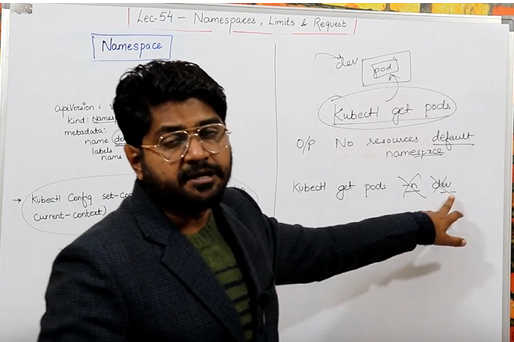 Lec-54 - Namespaces, Limits & Request
Namespace
kind: Names
metadata:
name
labels
name
→ Kubectl Config set-co
current-context)
dev
pod
Kubectl get pods
O/P No resources default
namespace
Kubectl get pods -n dev